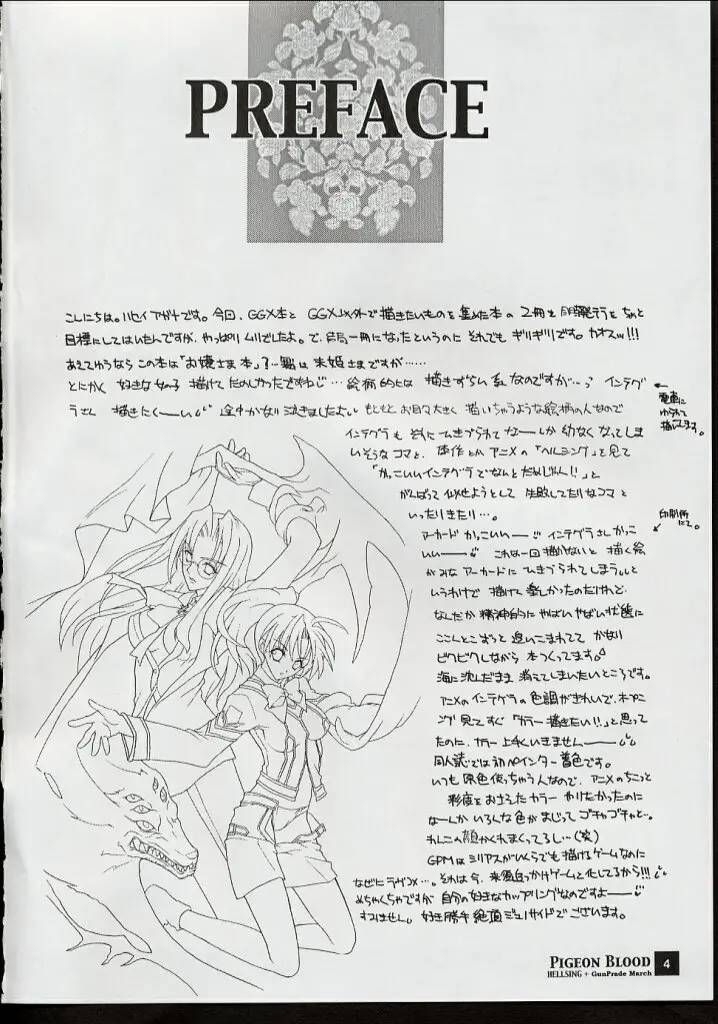 PREFACE
こんにちは。ハセイアガナです。今回、GGX本と GGX以外で描きたいものを集めた本の 2冊を同時
目標にしてはいたんですが、やっぱりムリでしたよ。で、結局一冊になったというのに それでも ギリギリです。カオスw!!!
あえてゆうなら この本は「お嬢さま本」?…は 未姫さまですが……
とにかく 好きな女の子 描けて たのしかったですねじ…絵柄的には 描きずらい系なのですが…っ インテグ
ラさん 描きたくーい 途中かなり泣きましたよ。もともと お目々大きく 描いちゃうような絵柄の人なので
電車に
ゆられて
描いてます。
インテグラも それに ひきずられて なーしか 幼なくなってしま
いそうなコマと、原作とかアニメの「ヘルシング」を見て
「かっこいいインテグラでなんとだめじゃん!!」と
がんばって 似せようとして 失敗してたりなコマと
いったりきたり…。
印刷所
にて。
アーカード かっこいいー インテグラさんかっこ
いいー これは一回描かないと 描く絵
がみな アーカードに ひきずられてしまうっと
いうわけで 描けて楽しかったのだけれど、
なんだか 精神的に やばいやばい状態に
とことん 追いこまれてて かなり
ビクビクしながら 本つくってます。
海に沈んだまま 消えてしまいたいところです。
アニメの インテグラの 色調がきれいで、オープニ
ング見てすぐ「カラー描きたい!!」と思って
たのに、カラー 上手くいきませんー
同人誌では初ペインター着色です。
いつも 原色使っちゃう人なので、アニメのちょっと
彩度を おさえたカラー やりたかったのに
なーんか いろんな色が まじって ゴチャゴチャと…。
わんこの顔かくれまくってるし…(笑)
GPMは ミリアスがいくらでも描けるゲームなのに
なぜにラヴコメ…。それは今、来須追っかけゲームと化してるから!!!
めちゃくちゃですが 自分の好きなカップリングなのですよー
すいません。好き勝手絶頂ジェノサイドでございます。
PIGEON BLOOD
HELLSING + GunPrade March
4